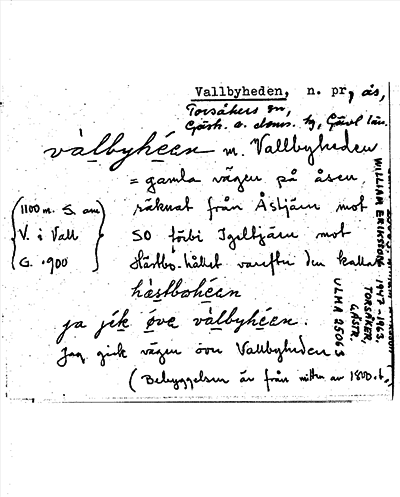 Vallbyheden, n. pr., ås,
Torsåkers sn,
Gästr. ö. doms. hg, Gävl. län.
vàlbyhéen m. Vallbyheden
= gamla vägen på åsen,
räknat från Åstjärn mot
SO förbi Igeltjärn mot
Hästbo-hållet varefter den kallas
hàstbohéen
ja jik öve vàlbyhéen.
Jag gick vägen över Vallbyheden
(Bebyggelsen är från mitten av 1800-t.)
1100 m. S. om
V. i Vall
G. 1900
WILLIAM ERIKSSON 1947-1963.
TORSÅKER,
GÄSTR.
ULMA 25063